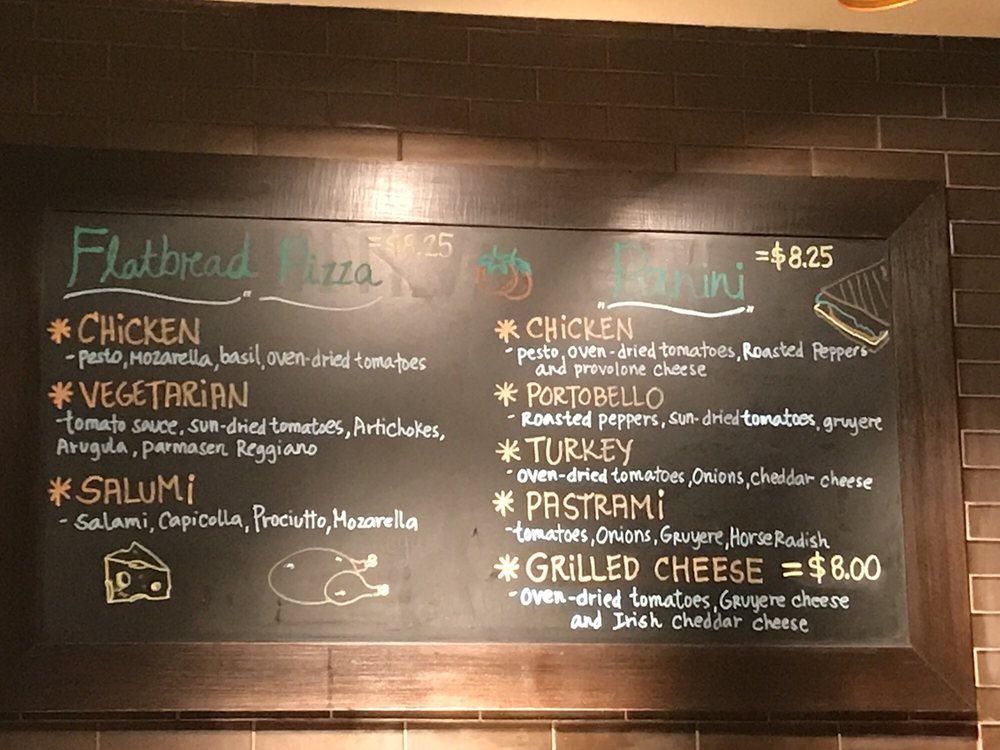 Flatbread Pizza =$8.25
* CHiCKEN
- pesto, Mozarella, basil, oven-dried tomatoes
* VEGETARiAN
- tomato sauce, sun-dried tomatoes, Artichokes,
Arugula, parmasen Reggiano
* SALUMi
- Salami, Capicolla, Prociutto, Mozarella
"Panini" =$8.25
* CHiCKEN
- pesto, oven-dried tomatoes, Roasted Peppers
and provolone cheese
* PORTOBELLO
- Roasted peppers, sun-dried tomatoes, gruyere
* TURKEY
- oven-dried tomatoes, Onions, cheddar cheese
* PASTRAMi
- tomatoes, Onions, Gruyere, Horse Radish
* GRiLLED CHEESE =$8.00
- Oven-dried tomatoes, Gruyere cheese
and Irish Cheddar cheese